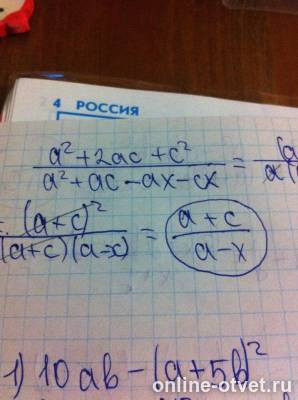 4 РОССИЯ
a² + 2ac + c² / a² + ac - ax - cx =
= (a+c)² / (a+c)(a-x) = a+c / a-x
1) 10ab - (a+5b)²
online-otvet.ru